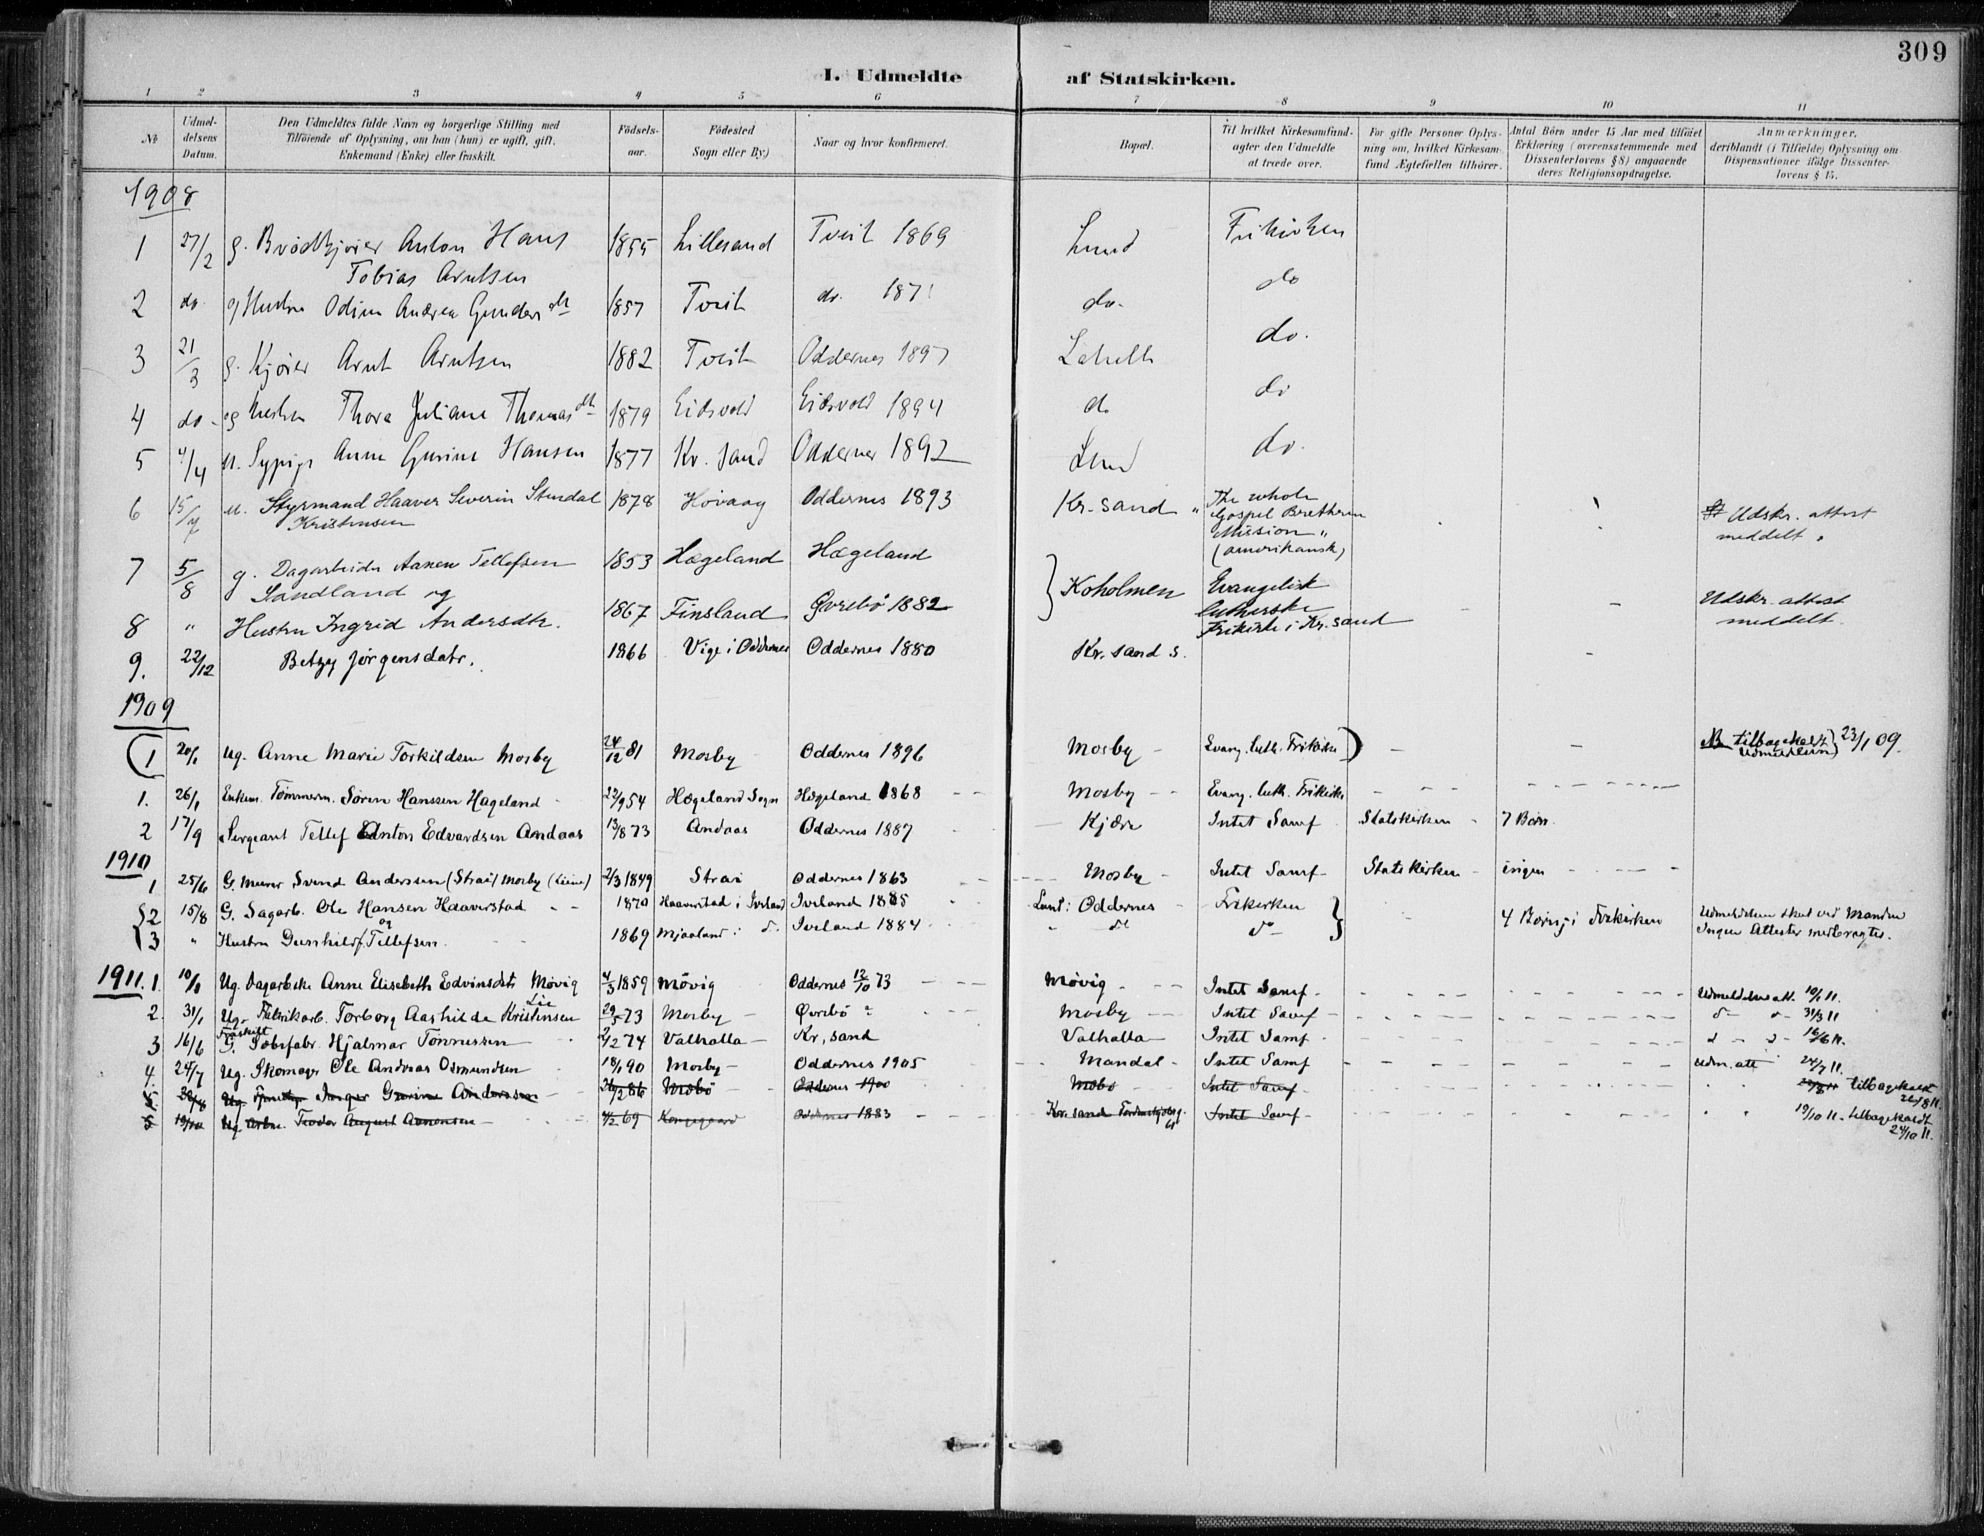 309
I. Udmeldte af Statskirken.
1 2 3 4 5 6 7 8 9 10 11
No
Udmeldelsens Datum.
Den Udmeldtes fulde Navn og borgerlige Stilling med
Tilföiende af Oplysning, om han (hun) er ugift, gift,
Enkemand (Enke) eller fraskilt.
Födsels-
aar.
Födested
Sogn eller By.)
Naar og hvor konfirmeret.
Bopæl.
Til hvilket Kirkesamfund
agter den Udmeldte
at træde over.
For gifte Personer Oplys-
ning om, hvilket Kirkesam-
fund Ægtefællen tilhörer.
Antal Börn under 15 Aar med tilföiet
Erklæring (overensstemmende med
Dissenterlovens § 8) angaaende
deres Religionsopdragelse.
Anmærkninger,
deriblandt (i Tilfælde) Oplysning om
Dispensationer ifölge Dissenter-
lovens § 15.
1908
1 27/2 g. Brödkjörer Anton Hans 1855 Lillesand Tveit 1869 Lund Frikirken
Tobias Arntsen
2 do. g Hustru Odine Andrea Gunders dtr 1857 Tveit do. 187 do. do
3 21/3 g. Kjörer Arnt Arntsen 1882 Tveit Oddernes 1897 do.
4 do. og hustru Thora Juliane Thomas dtr 1879 Eidsvold Eidsvold 1894 do do
5 4/4 u. Sypige Anne Gurine Hansen 1877 Kr. sand Oddernes 1892 Lund do.
6 15/7 u. Styrmand Haaver Severin Stusdal 1878 Hövaag Oddernes 1893 Kr. sand "The whole
Kristensen Gospel Brethren
Mission"
(amerikansk) Udskr. attest
meddelt.
7 5/8 g. Dagarbeider Aanen Tellefsen 1853 Hægeland Hægeland Koholmen Evangelisk
Sandland og lutherske
8 " Hustru Ingrid Andersdtr. 1867 Finsland Øvrebö 1882 Frikirke i Kr. sand Udskr. attest
meddelt.
9. 22/12 Betzy Jörgensdatr. 1866 Vige i Oddernes Oddernes 1880 Kr. sand S.
1909
(1 20/1 Ug. Anne Marie Torkildsen Mosby 24/12 81 Mosby Oddernes 1896 Mosby Evang. luth. Frikirke) tilbagekaldt 23/1 09.
Udmeldelsen
1. 26/1 Enkem. Tömmerm. Sören Hanssen Hageland 22/9 54 Hægeland Sogn Hægeland 1868 Mosby Evang. luth. Frikirke
2 17/9 Sergeant Tellef Anton Edvardsen Andaas 13/8 73 Andaas Oddernes 1887 Kjære Intet Samf. Statskirken 7 Børn
1910
1 25/6 G. Murer Svend Anderssen (Strai) Mosby 2/3 1849 Strai Oddernes 1863 Mosby Intet Samf. Statskirken ingen
2 15/8 G. Sagarb. Ole Hansen Haaverstad 1870 Haaverstad i Iveland Iveland 1885 Lund i Oddernes Frikirken 4 Börn, i Frikirken Udmeldelsen skeet ved Manden
og
3 " Hustru Gunhild Tellefsen 1869 Mjaaland i do Iveland 1884 " do do Ingen Attester medbragtes.
1911. 1. 10/1 Ug. Dagarbske Anne Elisabeth Edvinsdtr Møvig 4/3 1859 Møvig Oddernes 12/10 73 Møvig Intet Samf. Udmeldelsesatt. 10/1 11.
Lie
2. 31/1 Ug. Fabrikarb. Torborg Aashilde Kristensen 29/5 73 Mosby Øvrebö ? Mosby Intet Samf. do do 31/3 11
Fraskilt
3 16/6 G. Sæbefabr. Hjalmar Tönnessen 2/2 74 Valhalla Kr. sand Valhalla Intet Samf. 16/6 11.
4. 24/7 Ug. Skomager Ole Andreas Osmundsen 18/1 90 Mosby Oddernes 1905 Mandal Intet Samf Udm. att 24/7 11.
5. 22/8 Ug. Inger Gurine Anderssen 26/2 86 Mæbö Oddernes 1900 Mæbö Intet Samf. 22/8 11 tilbagekaldt
26/8 11.
5 19/10 Ug. Arbm. Teodor August Aanonsen 4/2 69 Kongsgaard Oddernes 1883 Kr. sand Intet Samf. 19/10 11. tilbagekaldt
24/10 11.